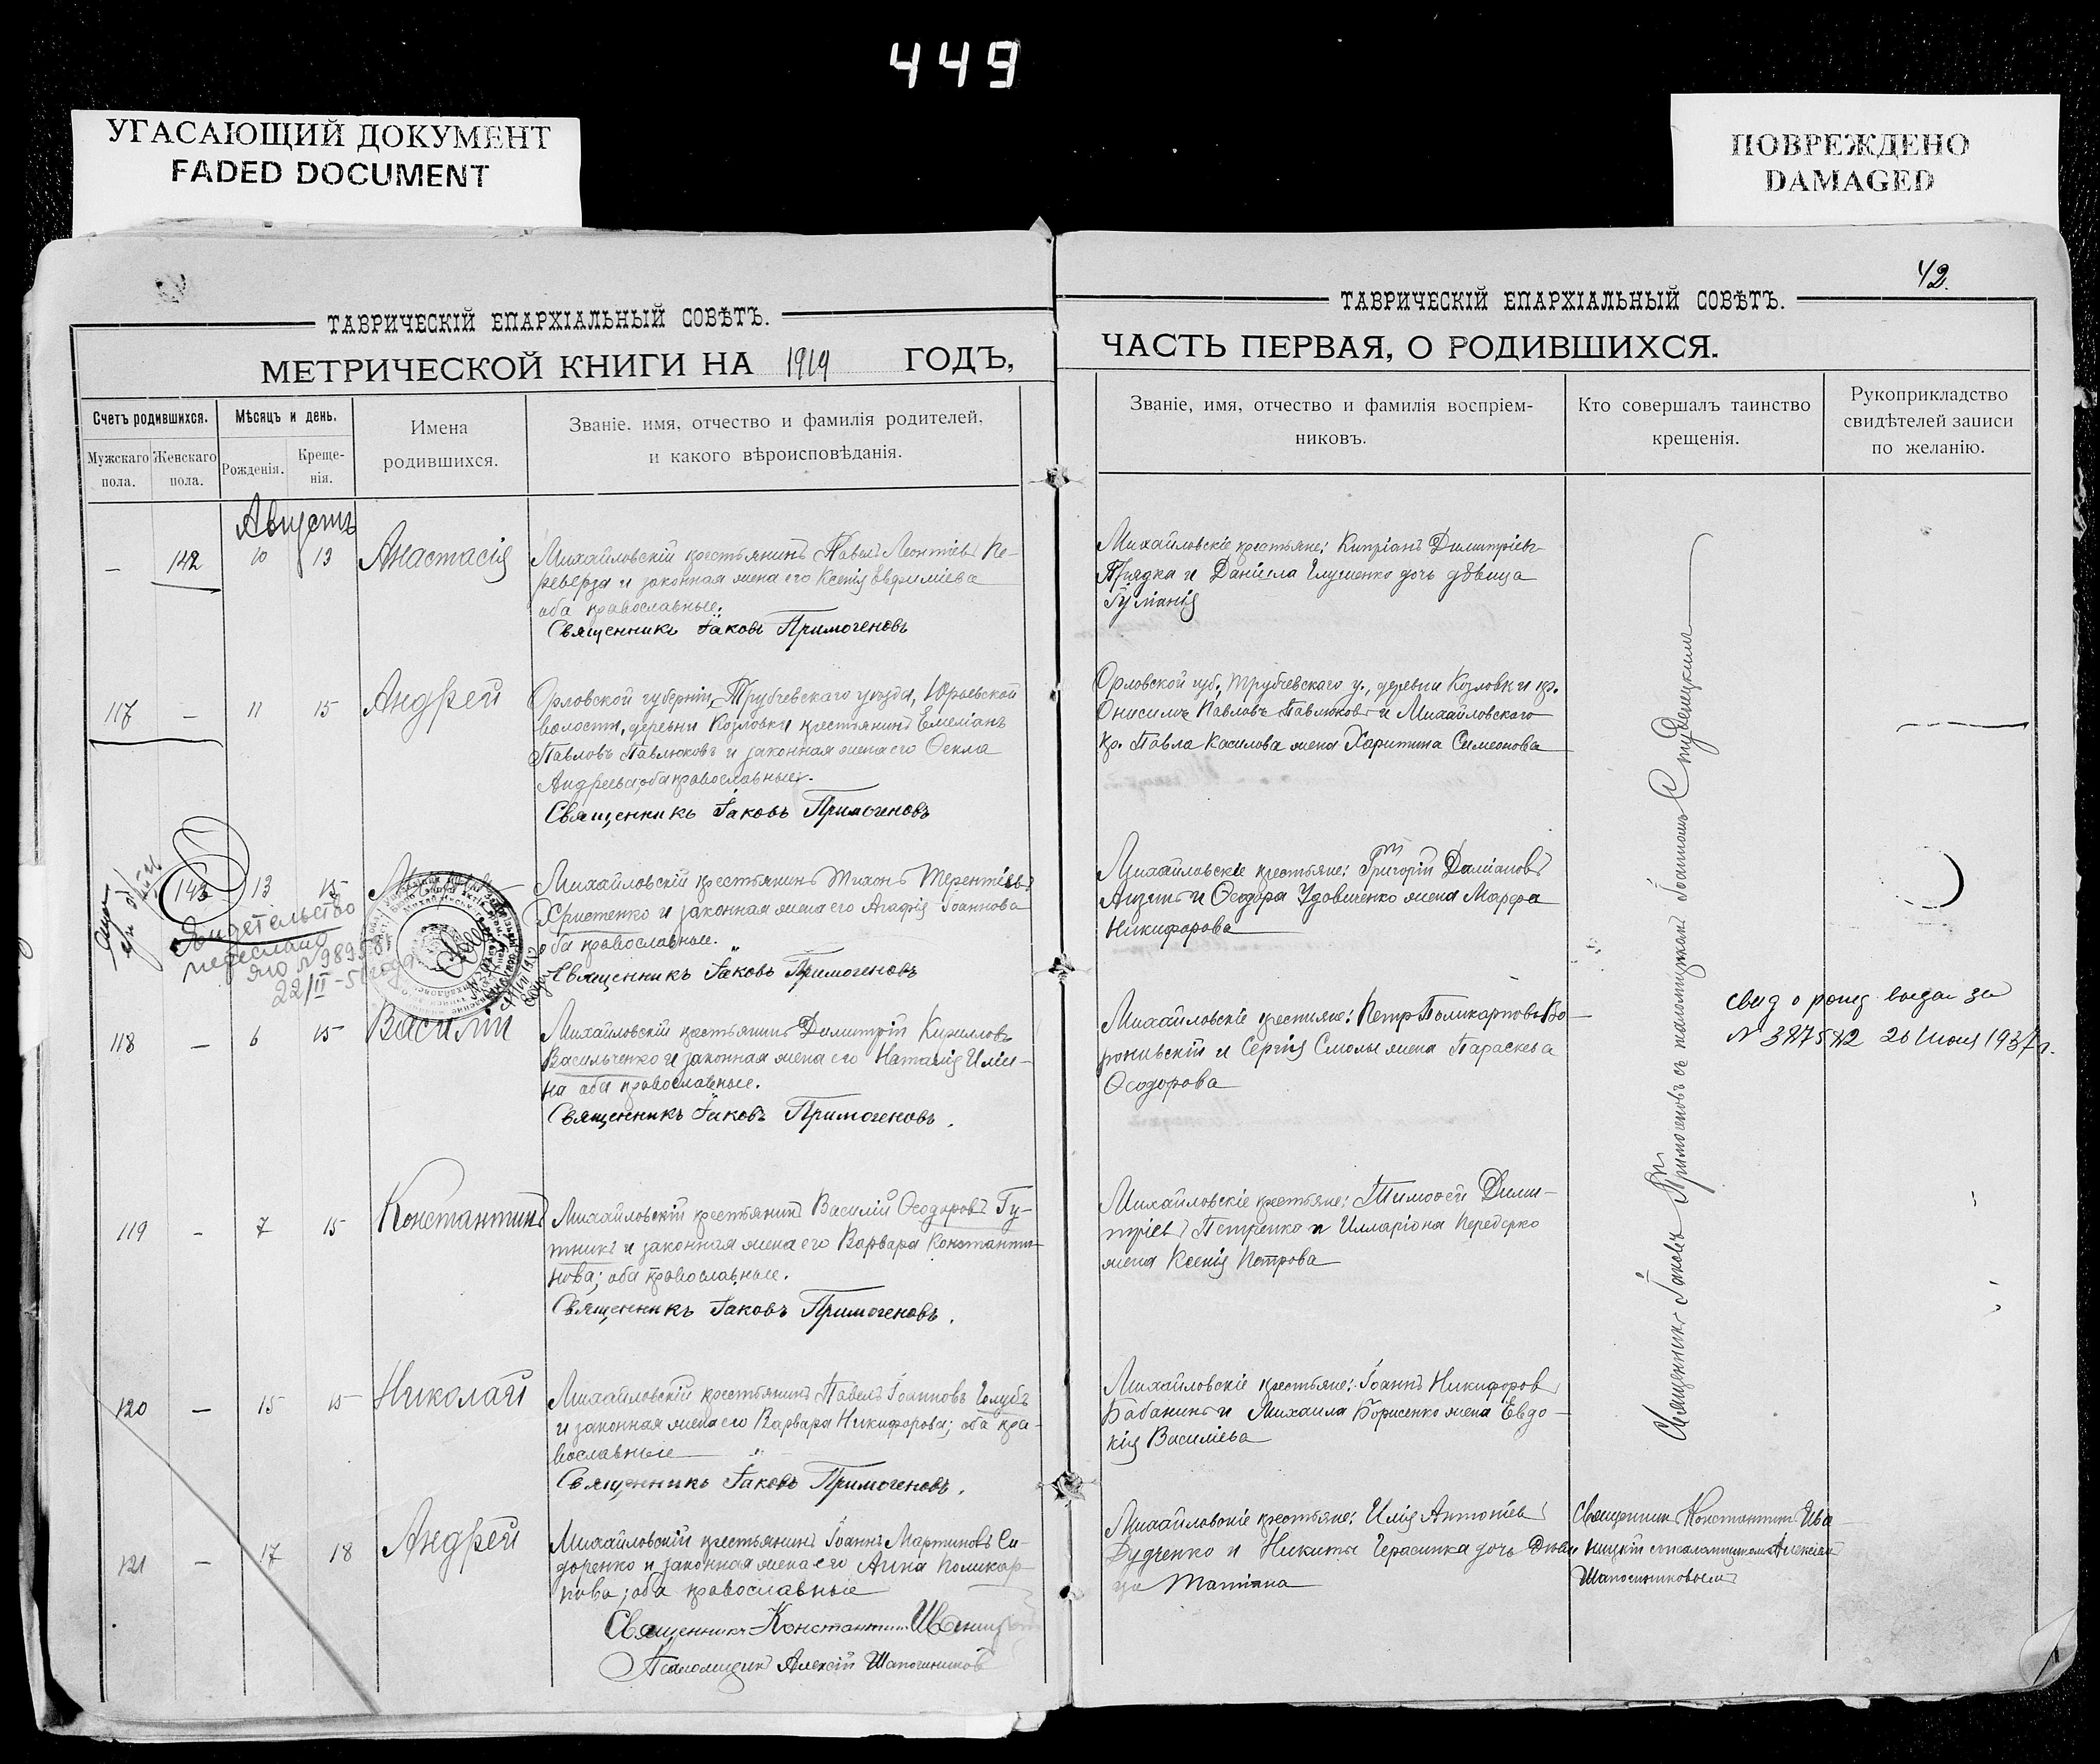 449
УГАСАЮЩИЙ ДОКУМЕНТ
FADED DOCUMENT
ПОВРЕЖДЕНО
DAMAGED
42.
ТАВРИЧЕСКІЙ ЕПАРХІАЛЬНЫЙ СОВѢТЪ.
МЕТРИЧЕСКОЙ КНИГИ НА 1919 ГОДЪ,
Счетъ родившихся.
Мѣсяцъ и день.
Имена
родившихся.
Званіе, имя, отчество и фамилія родителей,
и какого вѣроисповѣданія.
Мужскаго пола.
Женскаго пола.
Рожденія.
Крещенія.
Августъ
— 142 10 13 Анастасія
Михайловскій крестьянинъ Павелъ Леонтіевъ Пе-
реверза и законная жена его Ксенія Евфиміева
оба православные.
Священникъ Іаковъ Примогеновъ
117 — 11 15 Андрей
Орловской губерніи, Трубчевскаго уѣзда, Юрьевской
волости, деревни Козловки крестьянинъ Емеліанъ
Павловъ Павлюковъ и законная жена его Ѳекла
Андреева, оба православные.
Священникъ Іаковъ Примогеновъ
143 13 15
Михайловскій крестьянинъ Тихонъ Терентіевъ
Христенко и законная жена его Агафія Іоаннова
оба православные.
Священникъ Іаковъ Примогеновъ
Свидетельство
переслано
22/II-51 года
118 — 6 15 Василій
Михайловскій крестьянинъ Димитрій Кирилловъ
Васильченко и законная жена его Наталія Иліи-
на оба православные.
Священникъ Іаковъ Примогеновъ.
119 — 7 15 Константинъ
Михайловскій крестьянинъ Василій Ѳеодоровъ Гу-
тникъ и законная жена его Варвара Константи-
нова; оба православные.
Священникъ Іаковъ Примогеновъ.
120 — 15 15 Николай
Михайловскій крестьянинъ Павелъ Іоанновъ Голубъ
и законная жена его Варвара Никифорова; оба пра-
вославные
Священникъ Іаковъ Примогеновъ.
121 — 17 18 Андрей
Михайловскій крестьянинъ Іоаннъ Мартиновъ Си-
доренко и законная жена его Анна Поликар-
пова; оба православные
Священникъ Константинъ Иваницкій
Псаломщикъ Алексій Шапошниковъ
ТАВРИЧЕСКІЙ ЕПАРХІАЛЬНЫЙ СОВѢТЪ.
ЧАСТЬ ПЕРВАЯ, О РОДИВШИХСЯ.
Званіе, имя, отчество и фамилія воспріем-
никовъ.
Кто совершалъ таинство
крещенія.
Рукоприкладство
свидѣтелей записи
по желанію.
Михайловскіе крестьяне: Кипріанъ Димитріевъ
Прядка и Даніила Глущенко дочь дѣвица
Орловской губ., Трубчевскаго у., деревни Козловки кр.
Онисимъ Павловъ Павлюковъ и Михайловскаго
кр. Павла Касилова жена Харитина Симеонова
Михайловскіе крестьяне: Григорій Даміановъ
и Ѳеодора Удовиченко жена Марфа
Никифорова
Михайловскіе крестьяне: Петръ Поликарповъ Во-
роновскій и Сергія Смолы жена Параскева
Ѳеодорова
Михайловскіе крестьяне: Тимоѳей Дими-
тріевъ Петренко и Илларіона Передерко
жена Ксенія Петрова
Михайловскіе крестьяне: Іоаннъ Никифоровъ
Бабанинъ и Михаила Борисенко жена Евдо-
кія Василіева
Михайловскіе крестьяне: Илія Антоніевъ
Дудченко и Никиты Герасимка дочь дѣви
ца Татіана
Священникъ Іаковъ Примогеновъ съ псаломщикомъ Іоанномъ Студенецкимъ
Священникъ Константинъ Ива
ницкій съ псаломщикомъ Алексіемъ
Шапошниковымъ
свид о рожд выдан за
N 327572 26 Июня 1937 г.